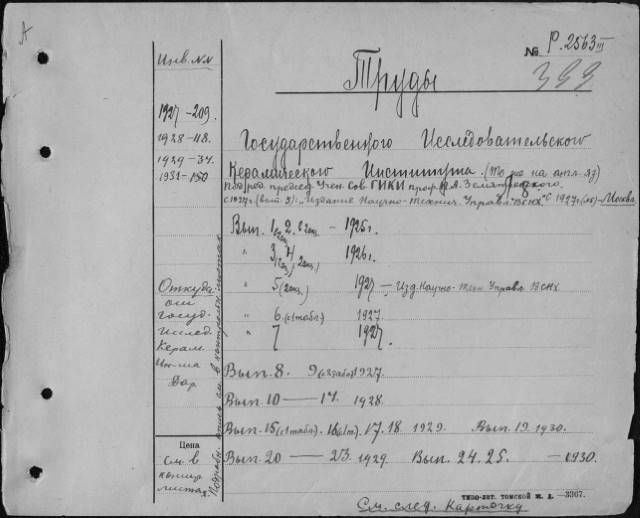 А
Инв. №№
№ Р. 2563 III
Труды
399
1927-209.
1928-118.
1929-34.
1932-150
Государственного Исследовательского
Керамического Института. (То же на англ. яз)
Под ред. председ. Учен. Сов ГИКИ проф.
с 1927г. (вып. 5): издание Научно-технич. Управл. ВСНХ" С 1927г. - Москва
Вып. 1, 2. 2 экз. - 1925г.
" 3, 4 2 экз. 1926г.
" 5 (2 экз.) 1927 - Изд. Научно-техн Управл. ВСНХ
" 6 (с 1 табл.) 1927.
" 7 1927.
Откуда
от
Госуд.
Исслед.
Керам.
Ин-та
Дар
Вып. 8. 9 1927.
Вып. 10 — 14. 1928.
Вып. 15 (с 1 табл.). 16 17. 18 1929. Вып. 19. 1930.
Вып. 20 — 23. 1929. Вып. 24. 25. — 1930.
Цена
См. в
контр
листах
ТИПО-ЛИТ. ТОМСКОЙ Ж. Д. —3367.
См. след. карточку